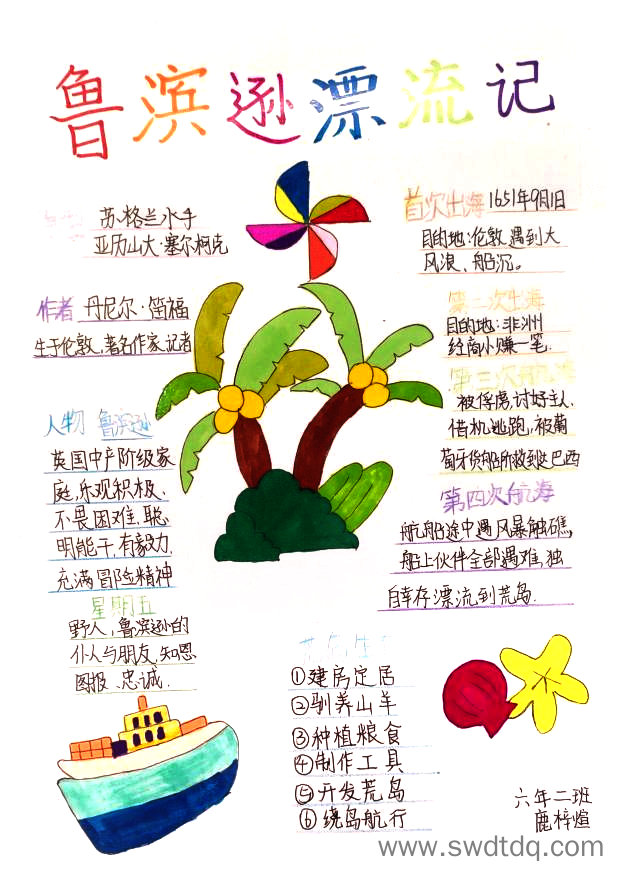 鲁滨逊漂流记
苏·格兰水手
亚历山大·塞尔柯克
作者 丹尼尔·笛福
生于伦敦,著名作家,记者
人物 鲁滨逊
英国中产阶级家
庭,乐观积极、
不畏困难,聪
明能干,有毅力,
充满冒险精神
星期五
野人,鲁滨逊的
仆人与朋友,知恩
图报、忠诚.
首次出海 1651年9月1日
目的地:伦敦,遇到大
风浪、船沉。
第二次出海
目的地:非洲
经商小赚一笔.
第三次航海
被俘虏,讨好主人.
借机逃跑,被葡
萄牙货船所救到达巴西
第四次航海
航船途中遇风暴触礁,
船上伙伴全部遇难,独
自幸存漂流到荒岛.
①建房定居
②驯养山羊
③种植粮食
④制作工具
⑤开发荒岛
⑥绕岛航行
六年二班
鹿梓煊
www.swdtdq.com